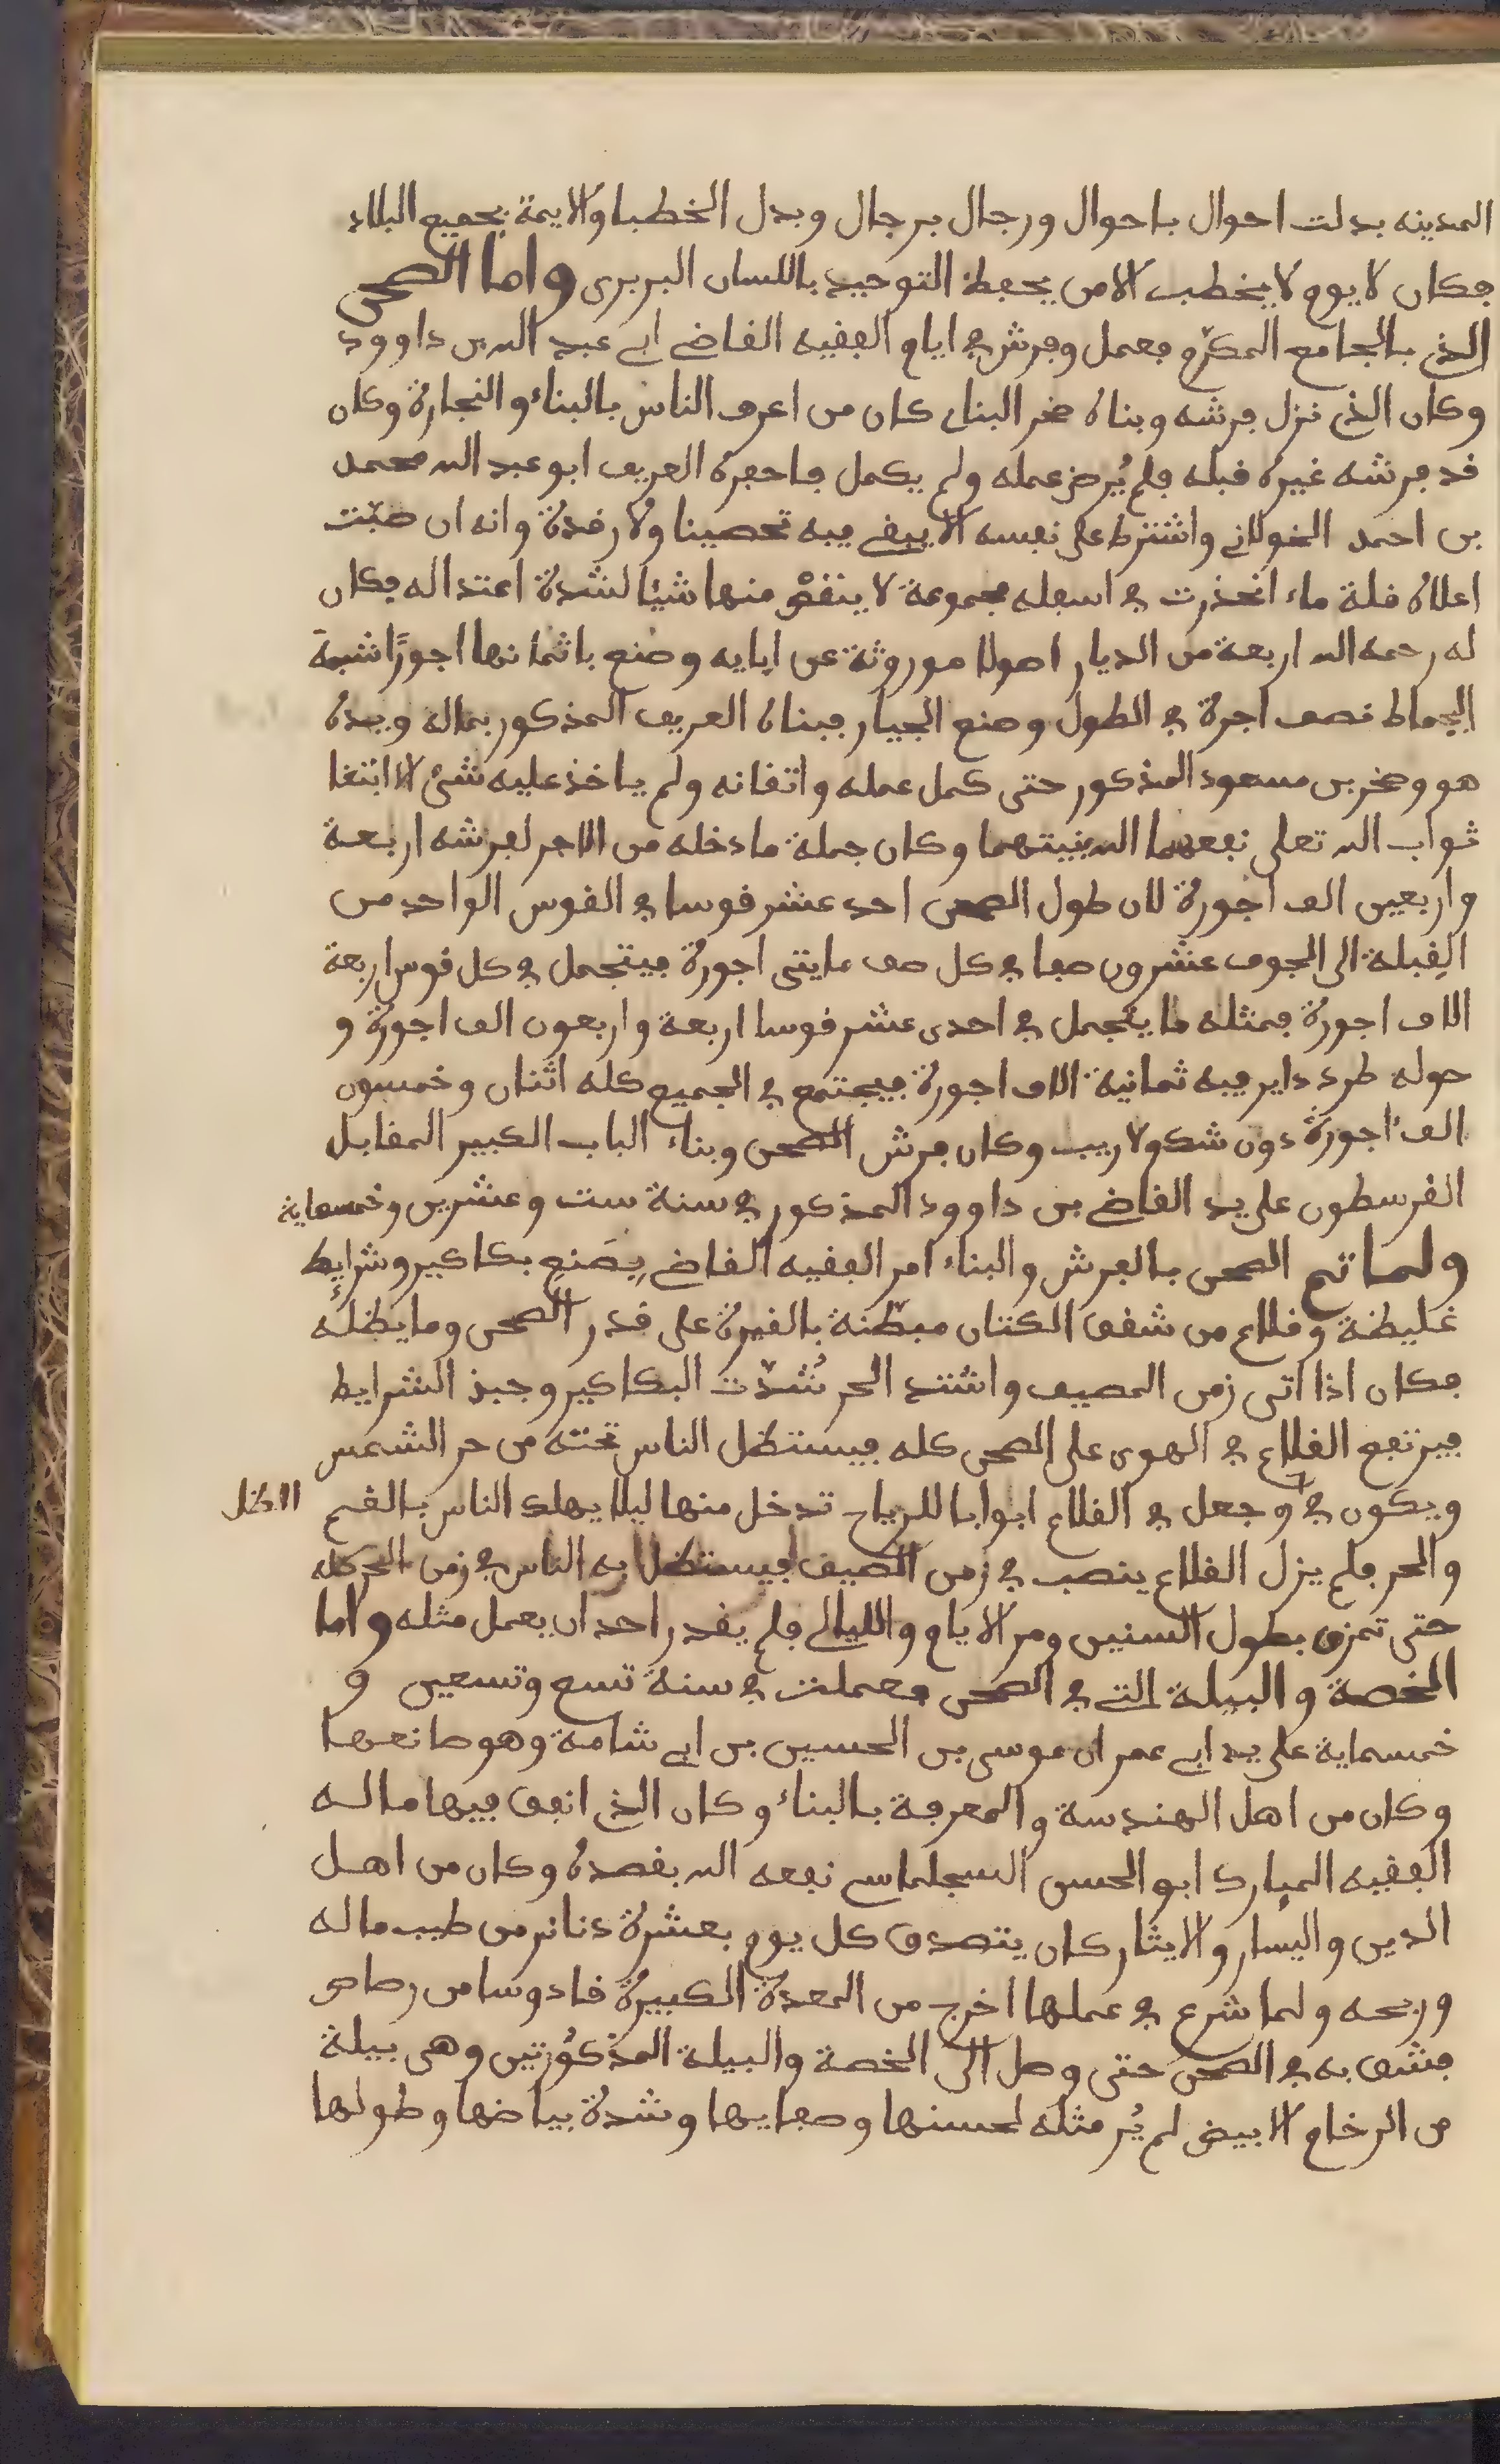 المدينه بدلت احوال باحوال ورجال برجال وبدل الخطبا والايمة بجميع البلاد
فكان لا يوم ولا يخطب الا من يحفظ التوحيد باللسان البربرى واما الصحن
الذي بالجامع المكرّم فعمل وفرش في ايام الفقيه القاضي ابي عبد الله بن داوود
وكان الذي نزل فرشه وبناه صخر البناء كان من اعرف الناس بالبناء والنجارة وكان
قد فرشه غيره قبله فلم يُرض عمله ولم يكمل فاحفره العريف ابو عبد الله محمد
بن احمد الخولاني واشترط على نفسه الا يبقي فيه تحصينا ولا رقدة وانه ان صبّت
اعلاه قلة ماء انحذرت في اسفله مجموعة لا ينقص منها شيئا لشدة اعتداله فكان
له رحمه الله اربعة من الديار اصولا موروثة عن ابايه وصنع باثمانها اجورًا شبه
البجماط نصف اجرة في الطول وصنع الجيار فبناه العريف المذكور بماله وبيده
هو وصخر بن مسعود المذكور حتى كمل عمله واتقانه ولم ياخذ عليه شئ الا ابتغا
ثواب الله تعلى نفعهما الله بنيتهما وكان جملة ما دخله من الاجر لفرشه اربعة
واربعين الف اجورة لان طول الصحن احد عشر قوسا في القوس الواحد من
القبلة الى الجوف عشرون صفا في كل صف مايتى اجورة فيتجمل في كل قوس اربعة
الاف اجورة فمثله ما يتجمل في احدى عشر قوسا اربعة واربعون الف اجورة و
حوله طرد داير فيه ثمانية الاف اجورة فيجتمع في الجميع كله اثنان وخمسون
الف اجورة دون شك ولا ريب وكان فرش الصحن وبناء الباب الكبير المقابل
القرسطون على يد القاضي بن داوود المذكور في سنة ست وعشرين وخمسماية
ولما تم الصحن بالفرش والبناء امر الفقيه القاضي بصنع بكاكير وشرايط
غليظة وقلاع من شقق الكتان مبطّنة بالقيرة على قدر الصحن وما يظله
فكان اذا اتى زمن المصيف واشتد الحر شُدّت البكاكير وجبذ الشرايط
فيرتفع القلاع في الهوى على الصحن كله فيستظل الناس تحته من حر الشمس
ويكون في وجعل في القلاع ابوابا للرياح تدخل منها ليلا يهلك الناس بالغم
الظل
والحر فلم يزل القلاع ينصب في زمن الصيف فيستظل به الناس في زمن الحر كله
حتى تمزق بطول السنين ومر الايام والليالي فلم يقدر احد ان يعمل مثله واما
الخصة والبيلة التي في الصحن فعملت في سنة تسع وتسعين و
خمسماية على يد ابي عمران موسى بن الحسين بن ابي شامة وهو صانعها
وكان من اهل الهندسة والمعرفة بالبناء وكان الذي انفق فيها ماله
الفقيه المبارك ابو الحسن السجلماسي نفعه الله بقصده وكان من اهل
الدين واليسار والايثار كان يتصدق كل يوم بعشرة دنانر من طيب ماله
وربحه ولما شرع في عملها اخرج من المعدة الكبيرة قادوسا من رصاص
فشق به في الصحن حتى وصل الى الخصة والبيلة المذكورتين وهى بيلة
من الرخام الابيض لم يُر مثله لحسنها وصفايها وشدة بياضها وطولها